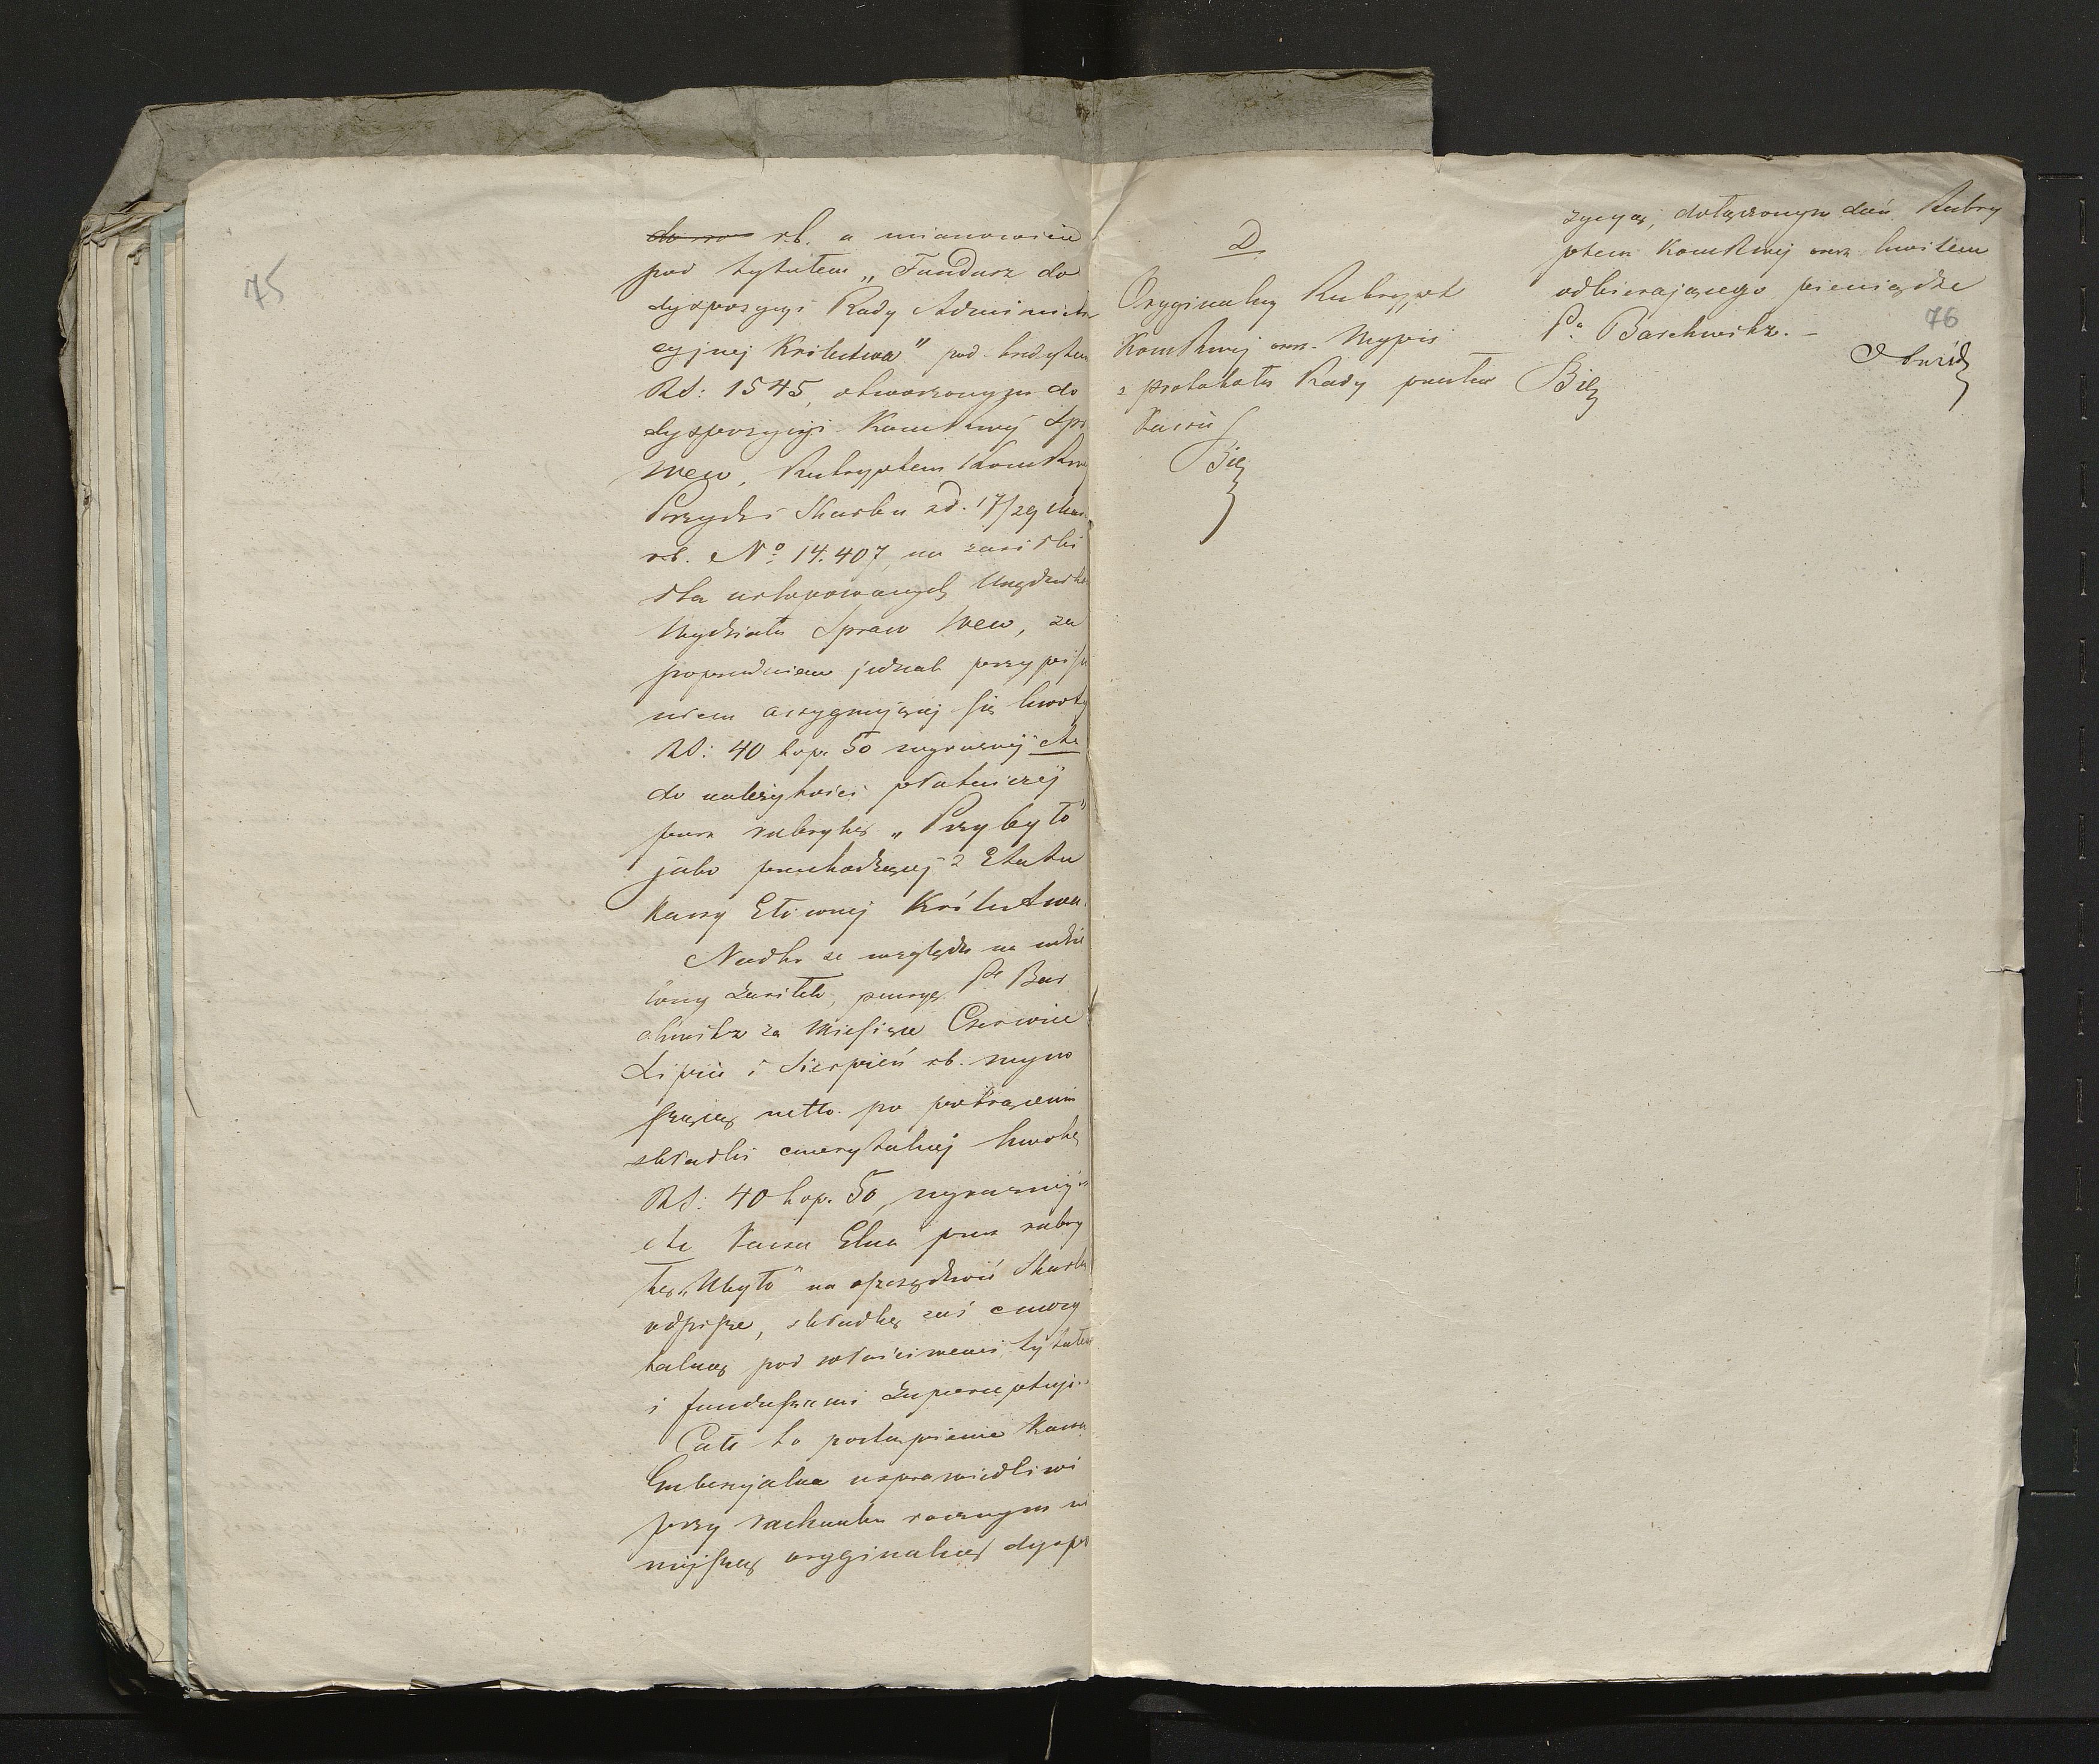 75
do ro rb. a mianowicie
pod tytułem „Fundusz do
dyspozycyi Rady Administra
cyjnej Królestwa" pod kredytem
RS: 1545, otworzonym do
dyspozycyi KomRwej Spr
Wew, Reskryptem KomRwej
Przych i Skarbu zd. 17/29 Mar
rb. No 14.407, na zasiłki
dla urlopowanych Urzędnikó
Wydziału Spraw Wew, za
poprzedniem jednak przypisa
niem assygnującej się kwoty
RS: 40 kop. 50 wyraźniej etc
do należytości płatniczej
przez rubrykę „Przybyło"
jako przechodzącej z Etatu
Kassy Głównej Królestwa.
Nadto ze względu na udzie
lony zasiłek, pensyę Pa Bar
chwitz za Miesiące Czerwiec
Lipiec i Sierpień rb. wyno
szącą netto po potrąceniu
składki emerytalnej kwotę
RS: 40 kop. 50, wyraźniej
etc Kassa Głna przez rubry
kę „Ubyło" na oszczędność Skarbu
odpisze, składkę zaś emery
talną pod właściwemi tytułem
i funduszami
Całe to postąpienie Kassa
Gubernijalna usprawiedliwi
przy rachunku rocznym ni
niejszą oryginalną dyspo
D
Oryginalny Reskrypt
KomRwej oraz Wypis
z protokołu Rady przesłać
Kassie
Bie
zycyą, dołączonym doń Reskry
ptem KomRwej oraz kwitem
odbierającego pieniądze
Pa Barchwitz. –
76
Bie